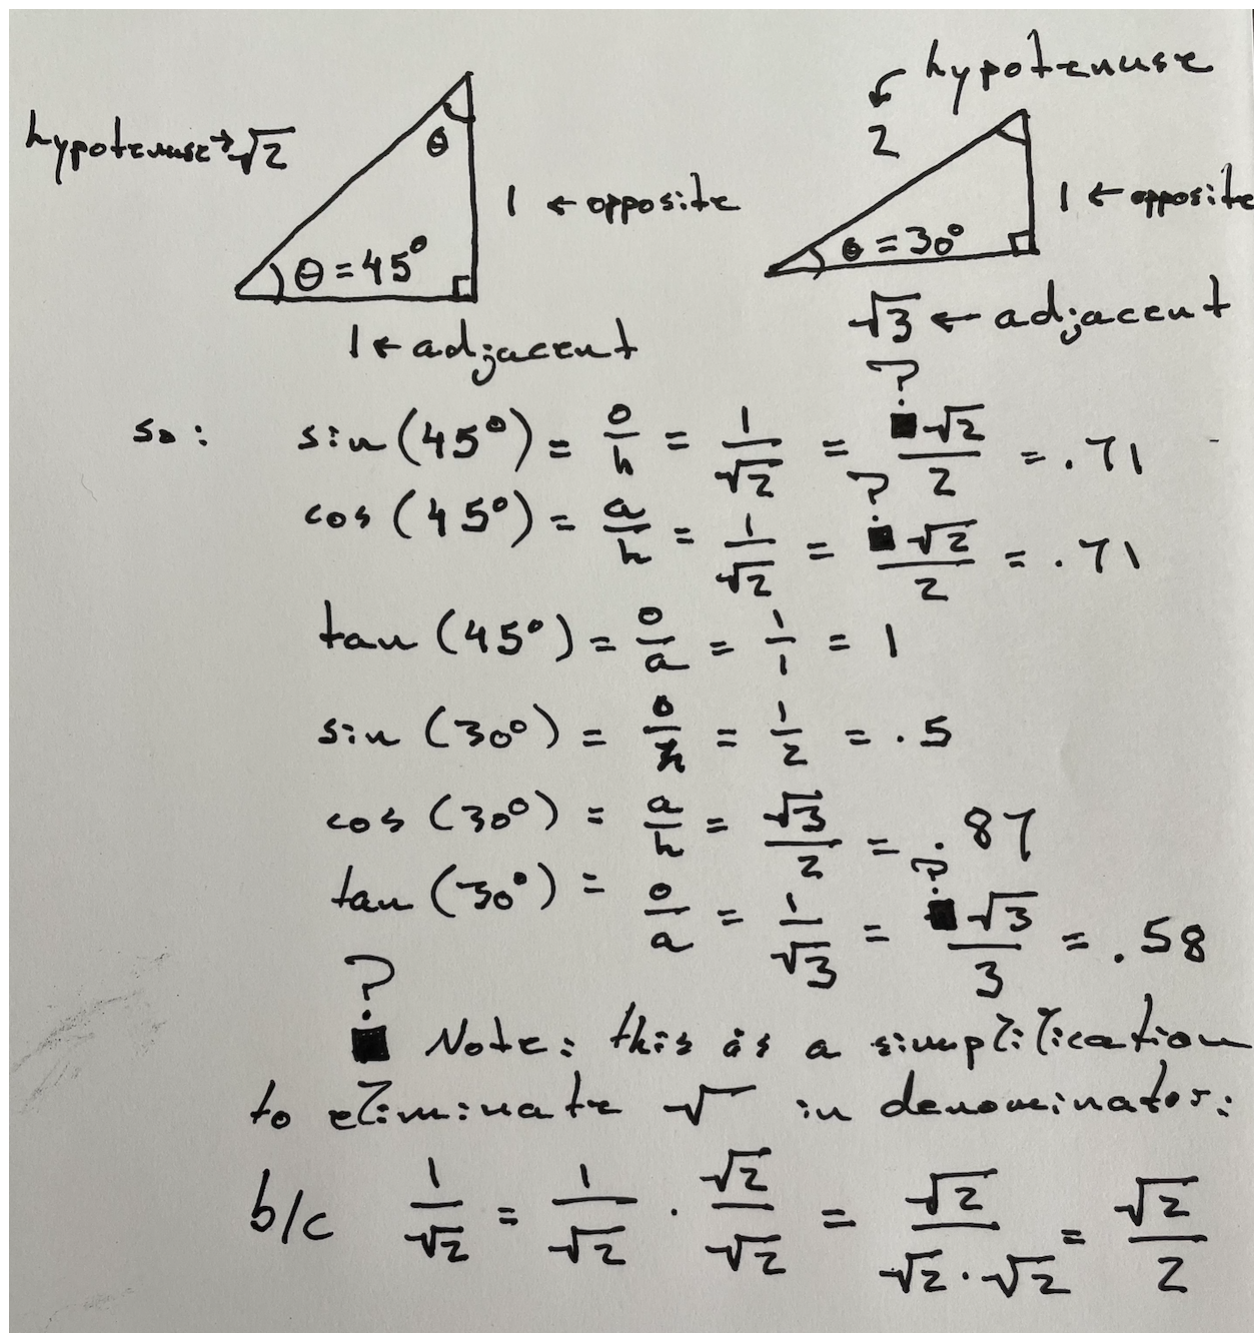 hypotenuse→√2
θ
θ = 45°
1 ← opposite
1 ← adjacent
hypotenuse
2
θ = 30°
1 ← opposite
√3 ← adjacent
so: sin (45°) = o/h = 1/√2 = ?■ √2/2 = .71
cos (45°) = a/h = 1/√2 = ?■ √2/2 = .71
tan (45°) = o/a = 1/1 = 1
sin (30°) = o/h = 1/2 = .5
cos (30°) = a/h = √3/2 = .87
tan (30°) = o/a = 1/√3 = ?■ √3/3 = .58
?■ Note: this is a simplification
to eliminate √ in denominator:
b/c 1/√2 = 1/√2 · √2/√2 = √2/√2·√2 = √2/2